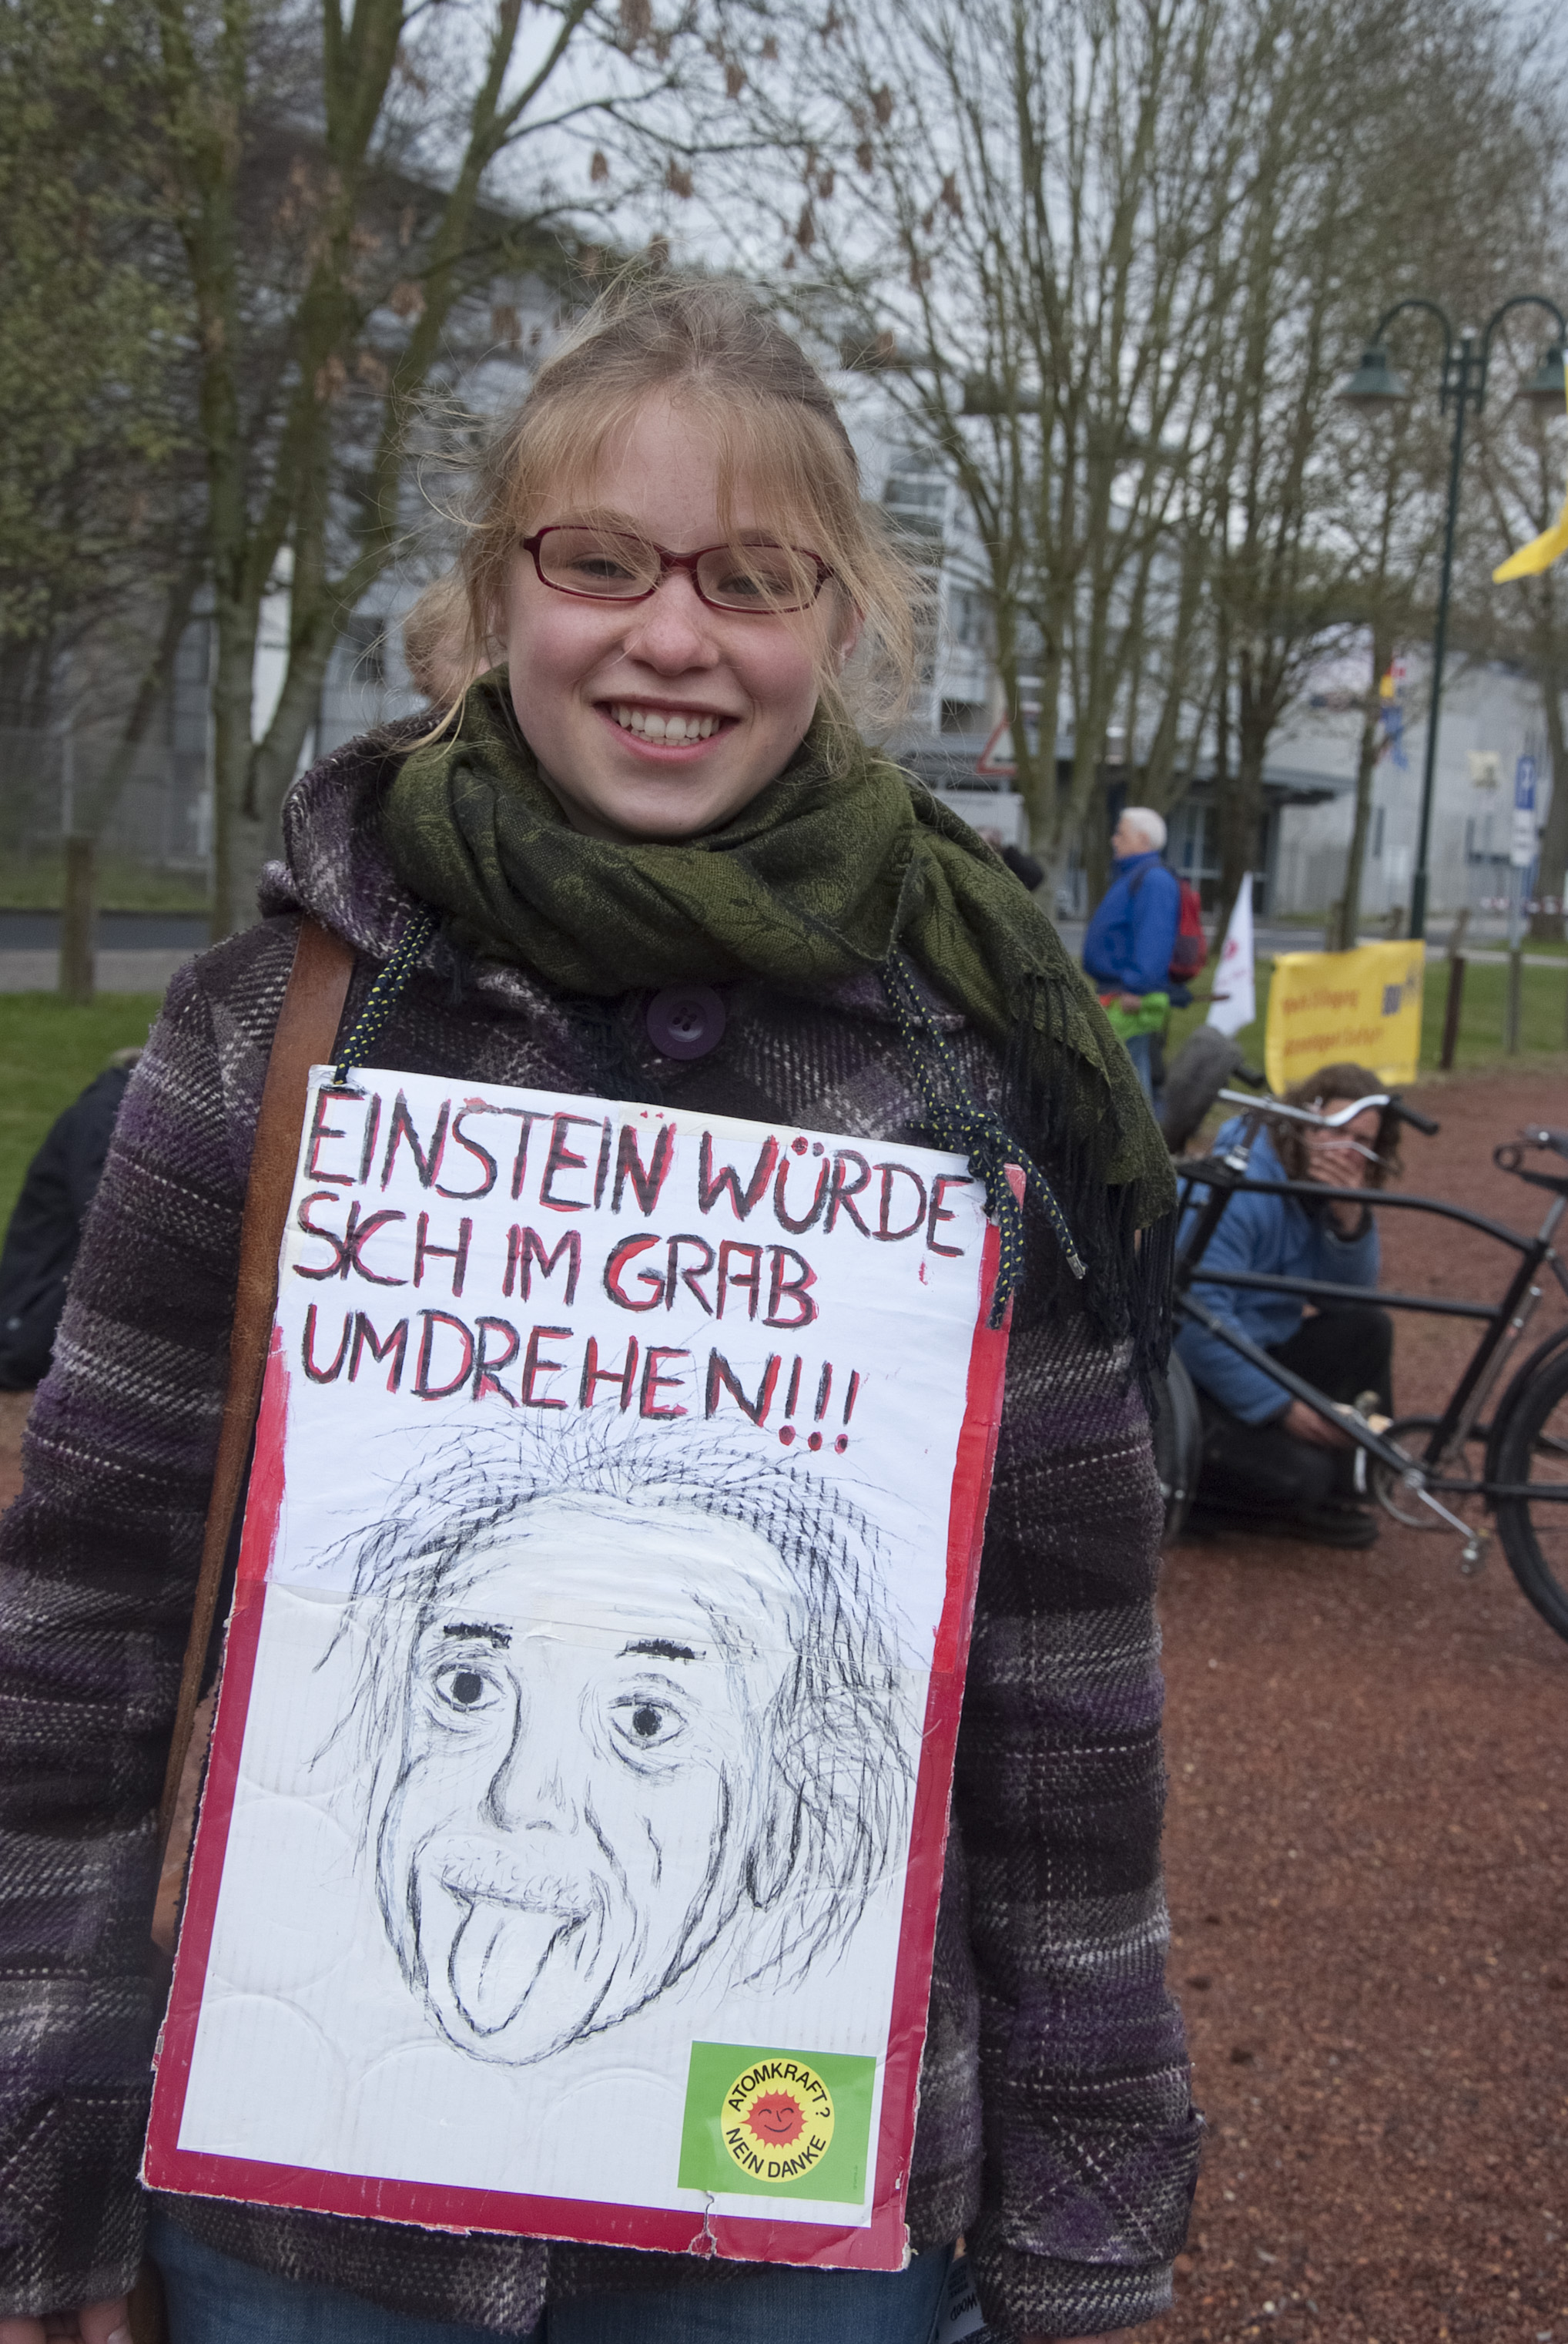 EINSTEIN WÜRDE
SICH IM GRAB
UMDREHEN!!!
ATOMKRAFT?
NEIN DANKE